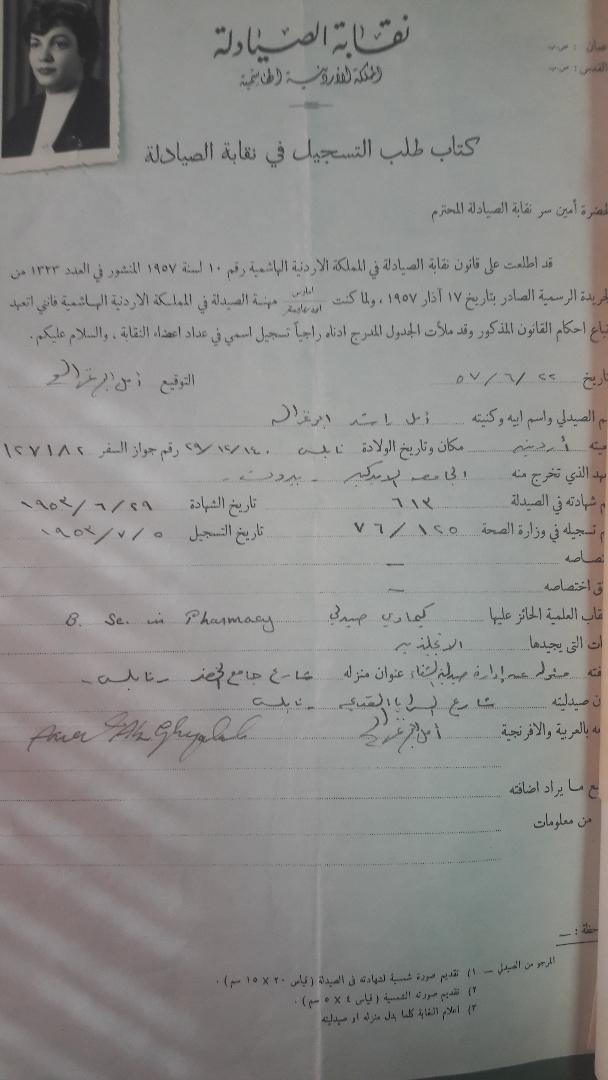 نقابة الصيادلة
المملكة الأردنية الهاشمية
عمان : ص.ب
القدس : ص.ب
كتاب طلب التسجيل في نقابة الصيادلة
حضرة أمين سر نقابة الصيادلة المحترم
قد اطلعت على قانون نقابة الصيادلة في المملكة الاردنية الهاشمية رقم ١٠ لسنة ١٩٥٧ المنشور في العدد ١٣٢٣ من
الجريدة الرسمية الصادر بتاريخ ١٧ آذار ١٩٥٧ ، ولما كنت امارس مهنة الصيدلة في المملكة الاردنية الهاشمية فانني اتعهد
باتباع احكام القانون المذكور وقد ملأت الجدول المدرج ادناه راجياً تسجيل اسمي في عداد اعضاء النقابة ، والسلام عليكم .
تاريخ ٢٢ / ٦ / ٥٧ التوقيع
م الصيدلي واسم ابيه وكنيته أمل راشد ابو غزاله
أردنية مكان وتاريخ الولادة نابلس رقم جواز السفر ١٢٧١٨٢
هد الذي تخرج منه الجامعه الاميركيه - بيروت -
م شهادته في الصيدلة ٦١٣ تاريخ الشهادة ٢٩ / ٦ / ١٩٥٣
م تسجيله في وزارة الصحة ١٢٥ / ٧٦ تاريخ التسجيل ٥ / ٧ / ١٩٥٣
تصاصه —
ق اختصاصه —
قاب العلمية الحائز عليها كيماوي صيدلي B. Sc. in Pharmacy
ات التى يجيدها الانجليزيه
فته مسئوله عن إدارة صيدلية الشفاء عنوان منزله شارع جامع الخضر - نابلس -
ن صيدليته شارع السرايا القديمه - نابلس
عه بالعربية والافرنجية
ع ما يراد اضافته
من معلومات
حظة : —
المرجو من الصيدلي — ١) تقديم صورة شمسية لشهادته في الصيدلة ( قياس ٢٠ × ١٥ سم ) .
٢) تقديم صورته الشمسية ( قياس ٤ × ٥ سم ) .
٣) اعلام النقابة كلما بدل منزله او صيدليته